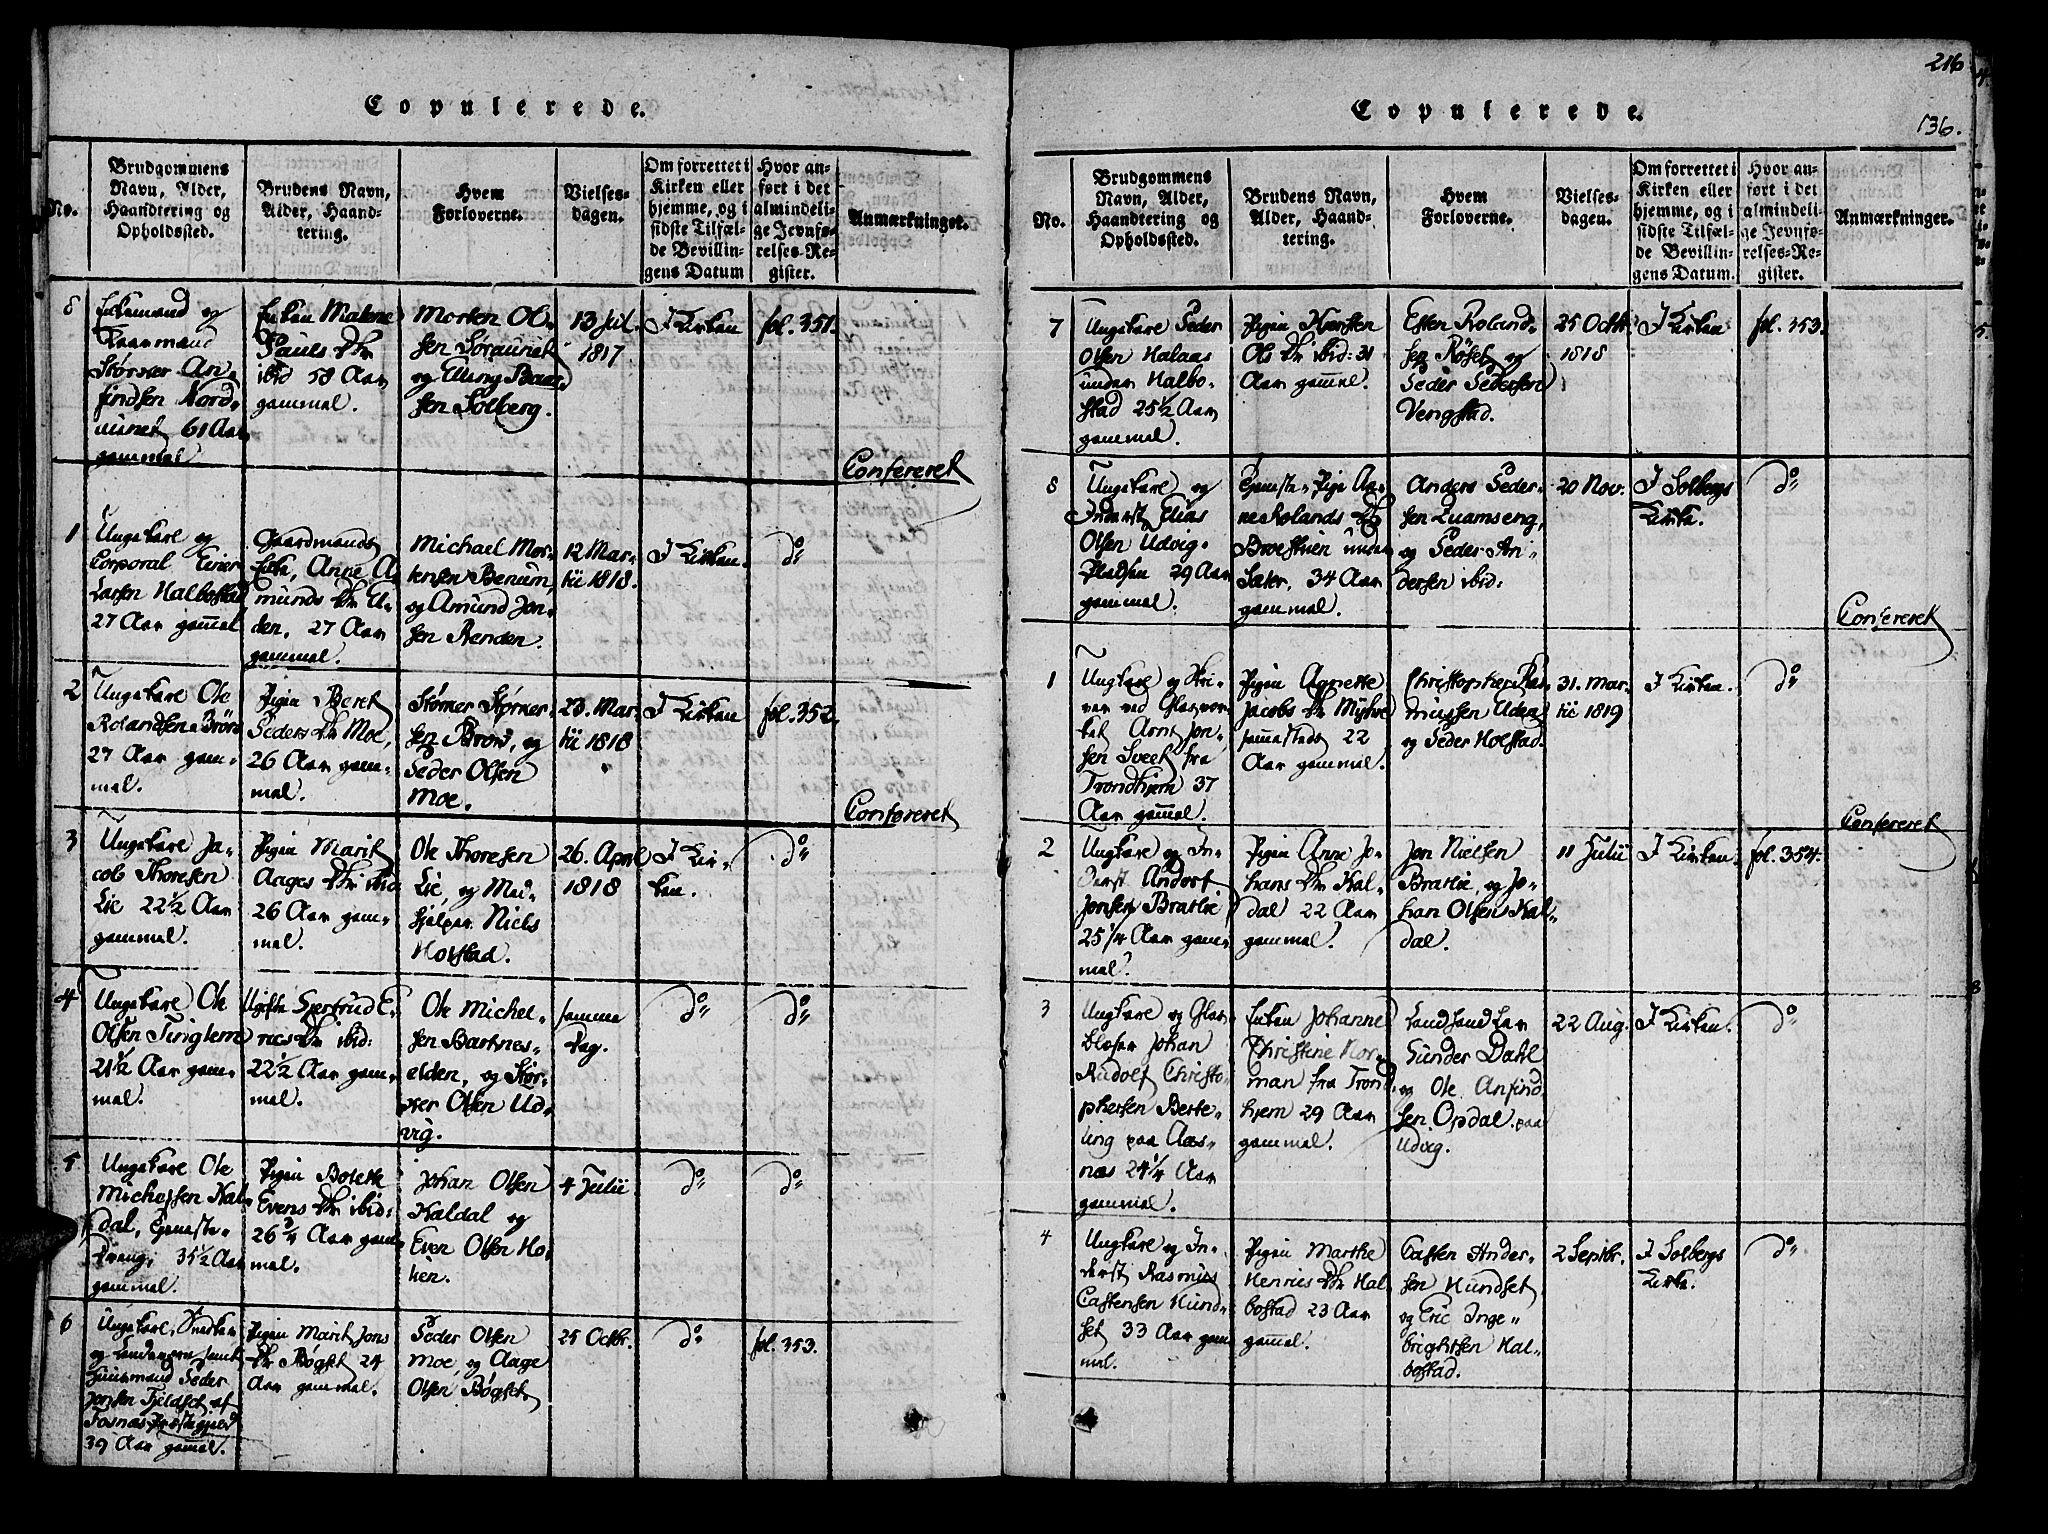 Copulerede.
No.
Brudgommens
Navn, Alder,
Haandtering og
Opholdssted.
Brudens Navn,
Alder, Haand-
tering.
Hvem
Forloverne.
Vielses-
dagen.
Om forrettet i
Kirken eller
hjemme, og i
sidste Tilfæl-
de Bevillin-
gens Datum
Hvor an-
ført i det
almindeli-
ge Jevnfø-
relses-Re-
gister.
Anmærkninger.
8
Enkemand og
Gaarmand
Størner An-
findsen Nord-
61 Aar
gammel
Enken Malene
Pauls Dtr
ibid 58 Aar
gammel.
Morten Ol-
sen
og Elling
sen Solberg.
13 Jul.
1817
I Kirken
fol. 351.
Confereret
1
Ungekarl og
Corporal Einer
Larsen Halbostad
27 Aar gam̅el
Gaardmands
Enke, Anne A-
munds Dtr El-
den, 27 Aar
gammel.
Michael Mor-
tensen Benum,
og Amund Jon-
sen Renden.
12 Mar-
tii 1818.
I Kirken.
do
2
Ungekarl Ole
Rolandsen Brörs
27 Aar gam-
mel.
Pigen Beret
Peders Dtr Moe,
26 Aar gam-
mel.
Størner Størner-
sen Brörs, og
Peder Olsen
Moe.
23. Mar-
tii 1818
I Kirken
fol. 352.
Confereret
3
Ungekarl Ja-
cob Thoresen
Lie 22½ Aar
gammel.
Pigen Marit
Aages Dtr ibid
26 Aar gam-
mel.
Ole Thoresen
Lie, og Med-
hjelper Niels
Holstad.
26. April
1818
I Kir-
ken.
do
4
Ungekarl Ole
Olsen Tinglem
21½ Aar gam-
mel.
Ugifte Gjertrud E-
rics Dtr ibid:
22½ Aar gam-
mel.
Ole Michel-
sen Bartnes-
elden, og Stør-
ker Olsen Ud-
vig.
samme
Dag.
do
do
5
Ungekarl Ole
Michelsen Kal-
dal, Tjeneste-
Dreng, 35½ Aar
gammel.
Pigen Bolette
Evens Dtr ibid:
26¾ Aar gam-
mel.
Johan Olsen
Kaldal og
Even Olsen Ho-
lien.
4 Julii
do
do
6
Ungekarl, Snedker
og
Huusmand Peder
Jonsen Fjeldset af
Fosnæs Præstegjeld
39 Aar gam̅el.
Pigen Marit Jons
Dtr Bøgset 24
Aar gammel.
Peder Olsen
Moe, og Aage
Olsen Bøgset.
25 Octbr.
do
fol. 353.
216
136.
Copulerede.
No.
Brudgommens
Navn, Alder,
Haandtering og
Opholdssted.
Brudens Navn,
Alder, Haand-
tering.
Hvem
Forloverne.
Vielses-
dagen.
Om forrettet i
Kirken eller
hjemme, og i
sidste Tilfæl-
de Bevillin-
gens Datum.
Hvor an-
ført i det
almindeli-
ge Jevnfø-
relses-Re-
gister.
Anmærkninger.
7
Ungekarl Peder
Olsen Halaas
under Halbo-
stad 25½ Aar
gammel.
Pigen Kjersten
Ols Dtr ibid: 31
Aar gam̅el.
Esten Roland-
sen Röset, og
Peder Pedersen
Vengstad.
25 Octbr
1818
I Kirken
fol. 353.
8
Ungekarl og
Inderst Elias
Olsen Udvig-
Pladsen 29 Aar
gammel.
Tjeneste-Pige An-
ne Rolands Dtr
Broestuen under
Sater, 34 Aar
gammel.
Anders Peder-
sen Quamseng,
og Peder An-
dersen ibid:
20 Nov:
I Solbergs
Kirke.
do
Confereret
1
Ungekarl og Skri-
ver ved Glasver-
ket Arnt Jon-
sen Sveet fra
Trondhjem 37
Aar gam̅el.
Pigen Agnette
Jacobs Dtr Myhre
sammesteds 22
Aar gammel.
Christopher Ras-
mussen Uden,
og Peder Holstad.
31. Mar-
tii 1819
I Kirken.
do
Confereret
2
Ungkarl og In-
derst Andorf
Jonsen Bratlie
25¼ Aar gam-
mel.
Pigen Anne Jo-
hans Dtr Kal-
dal 22 Aar
gammel.
Jon Nielsen
Bratlie, og Jo-
han Olsen Kal-
dal.
11 Julii
I Kirken
fol. 354.
3
Ungkarl og Glas-
blæser Johan
Rudolf Christo-
phersen Berte-
ling paa Aas-
næs 24¼ Aar
gammel.
Enken Johanne
Christine Hor-
man fra Trond-
hjem 29 Aar
gammel.
Gunder Dahl
og Ole Anfind-
sen Opdal paa
Udvig.
22 Aug.
I Kirken.
do
4
Ungkarl og In-
derst Rasmus
Castensen Hund-
set 33 Aar gam-
mel.
Pigen Marthe
Henrics Dtr Hal-
bostad 23 Aar
gam̅el.
Casten Ander-
sen Hundset
og Eric Inge-
brigtsen Hal-
bostad.
2 Septbr.
I Solbergs
Kirke.
do